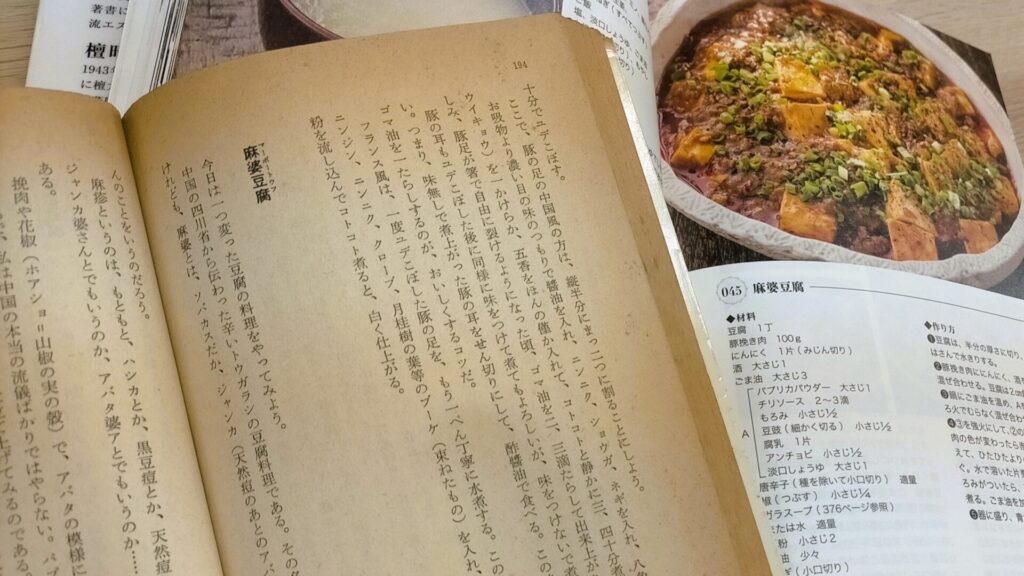 著書に
流エス
檀晴
1943年
に檀
194
十分でユデこぼす。
ここで、豚の足の中国風の方は、縦半分にまっ二つに割ることにしよう。
お吸物より濃い目の味のつもりで醤油を入れ、ニンニク、ショウガ、ネギを入れ、八角
ウイキョウ)を一かけらか、五香をほんの僅か入れて、コトコトと静かに三、四十分煮
しみ、豚足が箸で自由に裂けるようになった頃、ゴマ油を二、三滴たらして出来上が
豚の耳もユデこぼした後に同様に味をつけて煮てもよろしいが、味をつけないで煮
い。つまり、味無しで煮上がった豚の耳をせん切りにして、酢醤油で食べる。この
ゴマ油を一たらしするのが、おいしくするコツだ。
フランス風は、一度ユデこぼした豚の足を、もう一ぺん丁寧に水煮する。この
ニンジン、ニンニク、クローブ、月桂樹の葉等のブーケ(束ねたもの)を入れ、
粉を流し込んでコトコト煮ると、白く仕上がる。
麻婆豆腐
今日は一つ変った豆腐の料理をやってみよう。
中国の四川省から伝わった辛いトウガラシの豆腐料理である。その
けれども、麻婆とは、ソバカスだか、ジャンカ(天然痘のあとのアバ
んのことをいうのだろう。
麻疹というのは、もともと、ハシカとか、黒豆痘とか、天然痘
ジャンカ婆さんとでもいうのか、アバタ婆アとでもいうのか……
ある。
挽肉や花椒(ホアショー=山椒の実の殻)で、アバタの模様に
私は中国の本当の流儀ばかりではやらない。
045 麻婆豆腐
◆材料
豆腐 1丁
豚挽き肉 100g
にんにく 1片(みじん切り)
酒 大さじ1
ごま油 大さじ3
A
パプリカパウダー 大さじ1
チリソース 2〜3滴
もろみ 小さじ½
豆豉(細かく切る) 小さじ½
腐乳 1片
アンチョビ 小さじ½
淡口しょうゆ 大さじ1
唐辛子(種を除いて小口切り) 適量
椒(つぶす) 小さじ¼
ガラスープ(376ページ参照)
たは水 適量
粉 小さじ2
油 少々
ぎ(小口切り)
◆作り方
❶豆腐は、半分の厚さに切り、
はさんで水きりする。
❷豚挽き肉ににんにく、酒
混ぜ合わせる。豆腐は2cm
❸鍋にごま油を温め、A
ろ火でむらなく混ぜ合わ
❹③を強火にして、②の
肉の色が変わったら
えて、ひたひたより
ぐ。水で溶いた片
ろみがついたら、
煮る。ごま油を
❺器に盛り、青